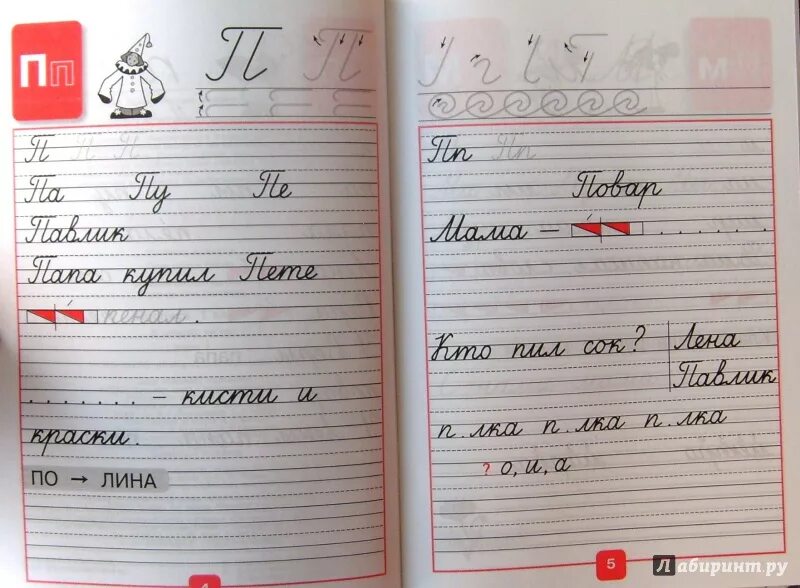 Пп
П П
П П П
Па Пу Пе
Павлик
Папа купил Пете
пенал.
. . . . . . . – кисти и
краски.
ПО → ЛИНА
4
Пп Пп
Повар
Мама – . . . . . .
Кто пил сок? Лена
Павлик
п.лка п.лка п.лка
? о, и, а
5
Лабиринт.ру